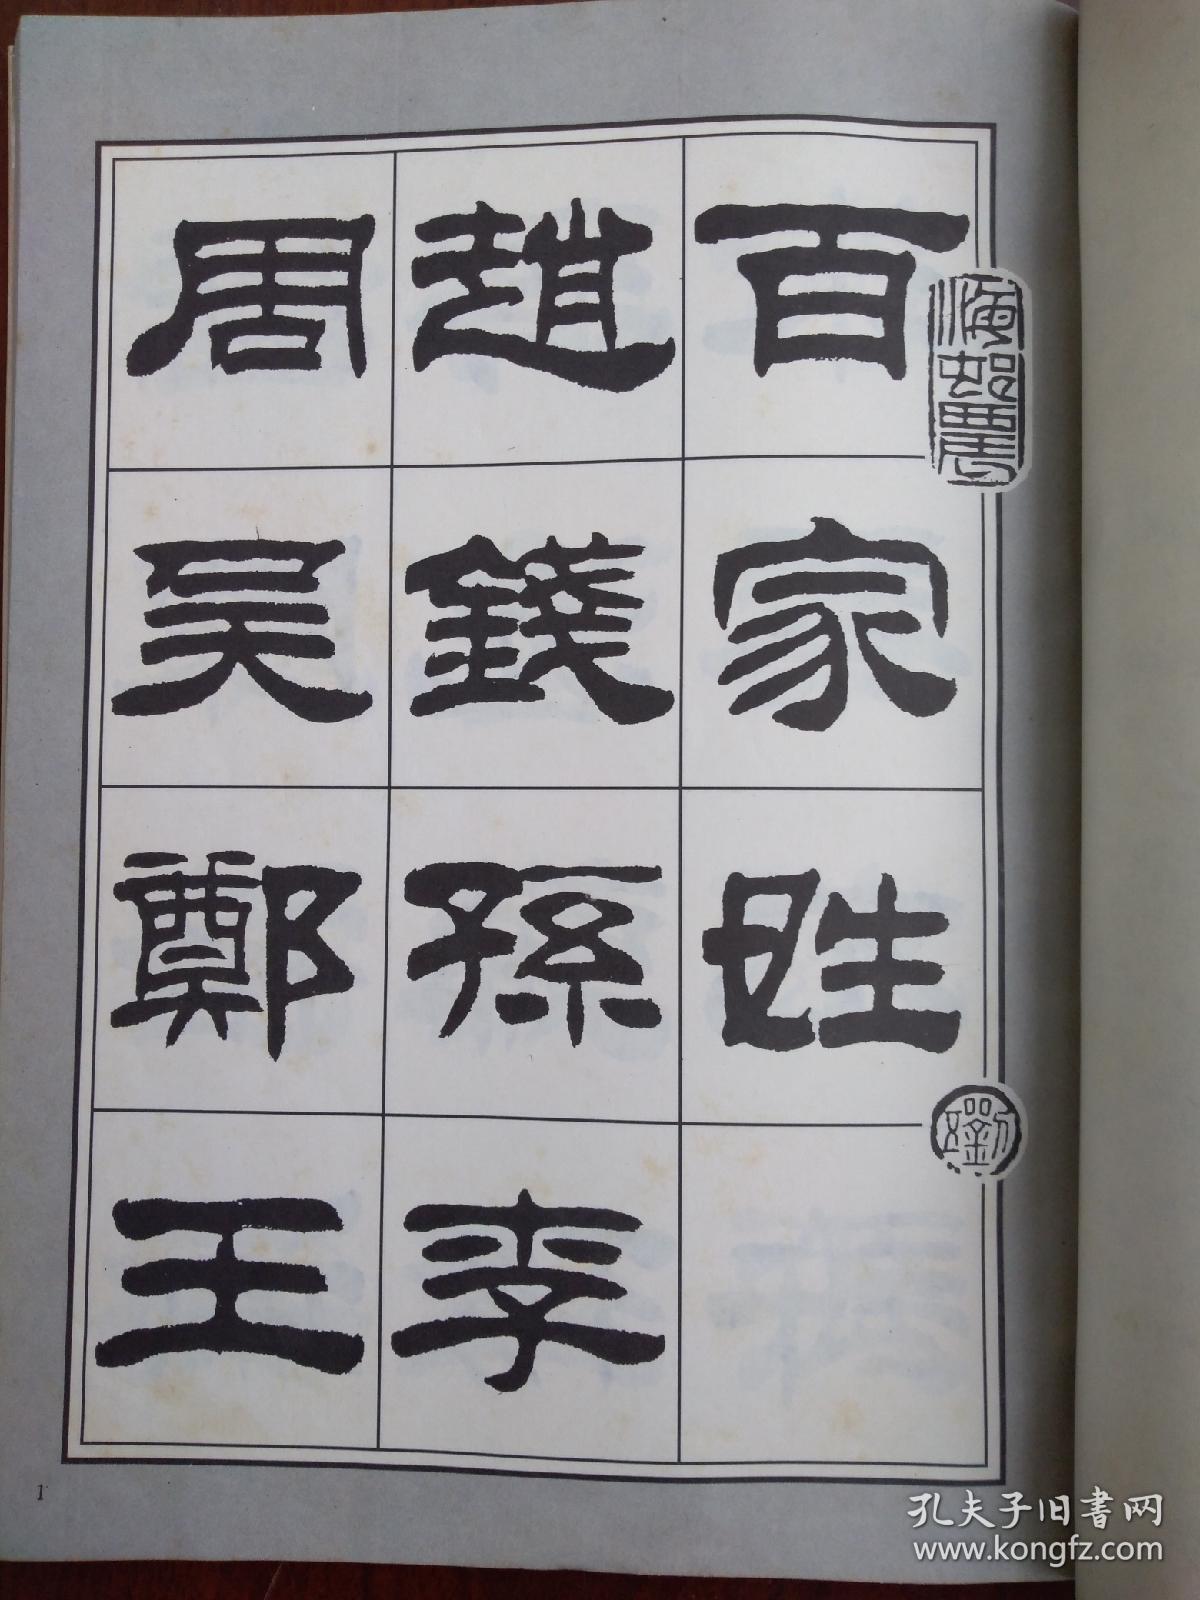 百家姓
趙錢孫李
周吳鄭王
劉
1
孔夫子旧书网
www.kongfz.com